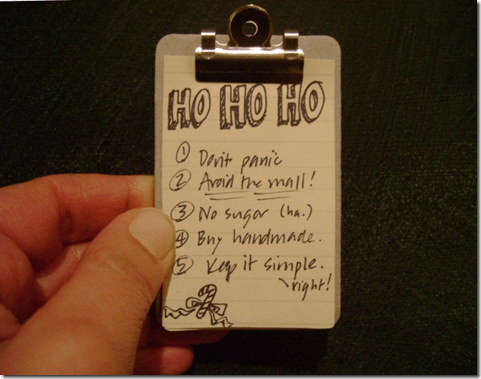 HO HO HO
① Don't panic
② Avoid the mall!
③ No sugar (ha.)
④ Buy handmade.
⑤ Keep it simple.
right!